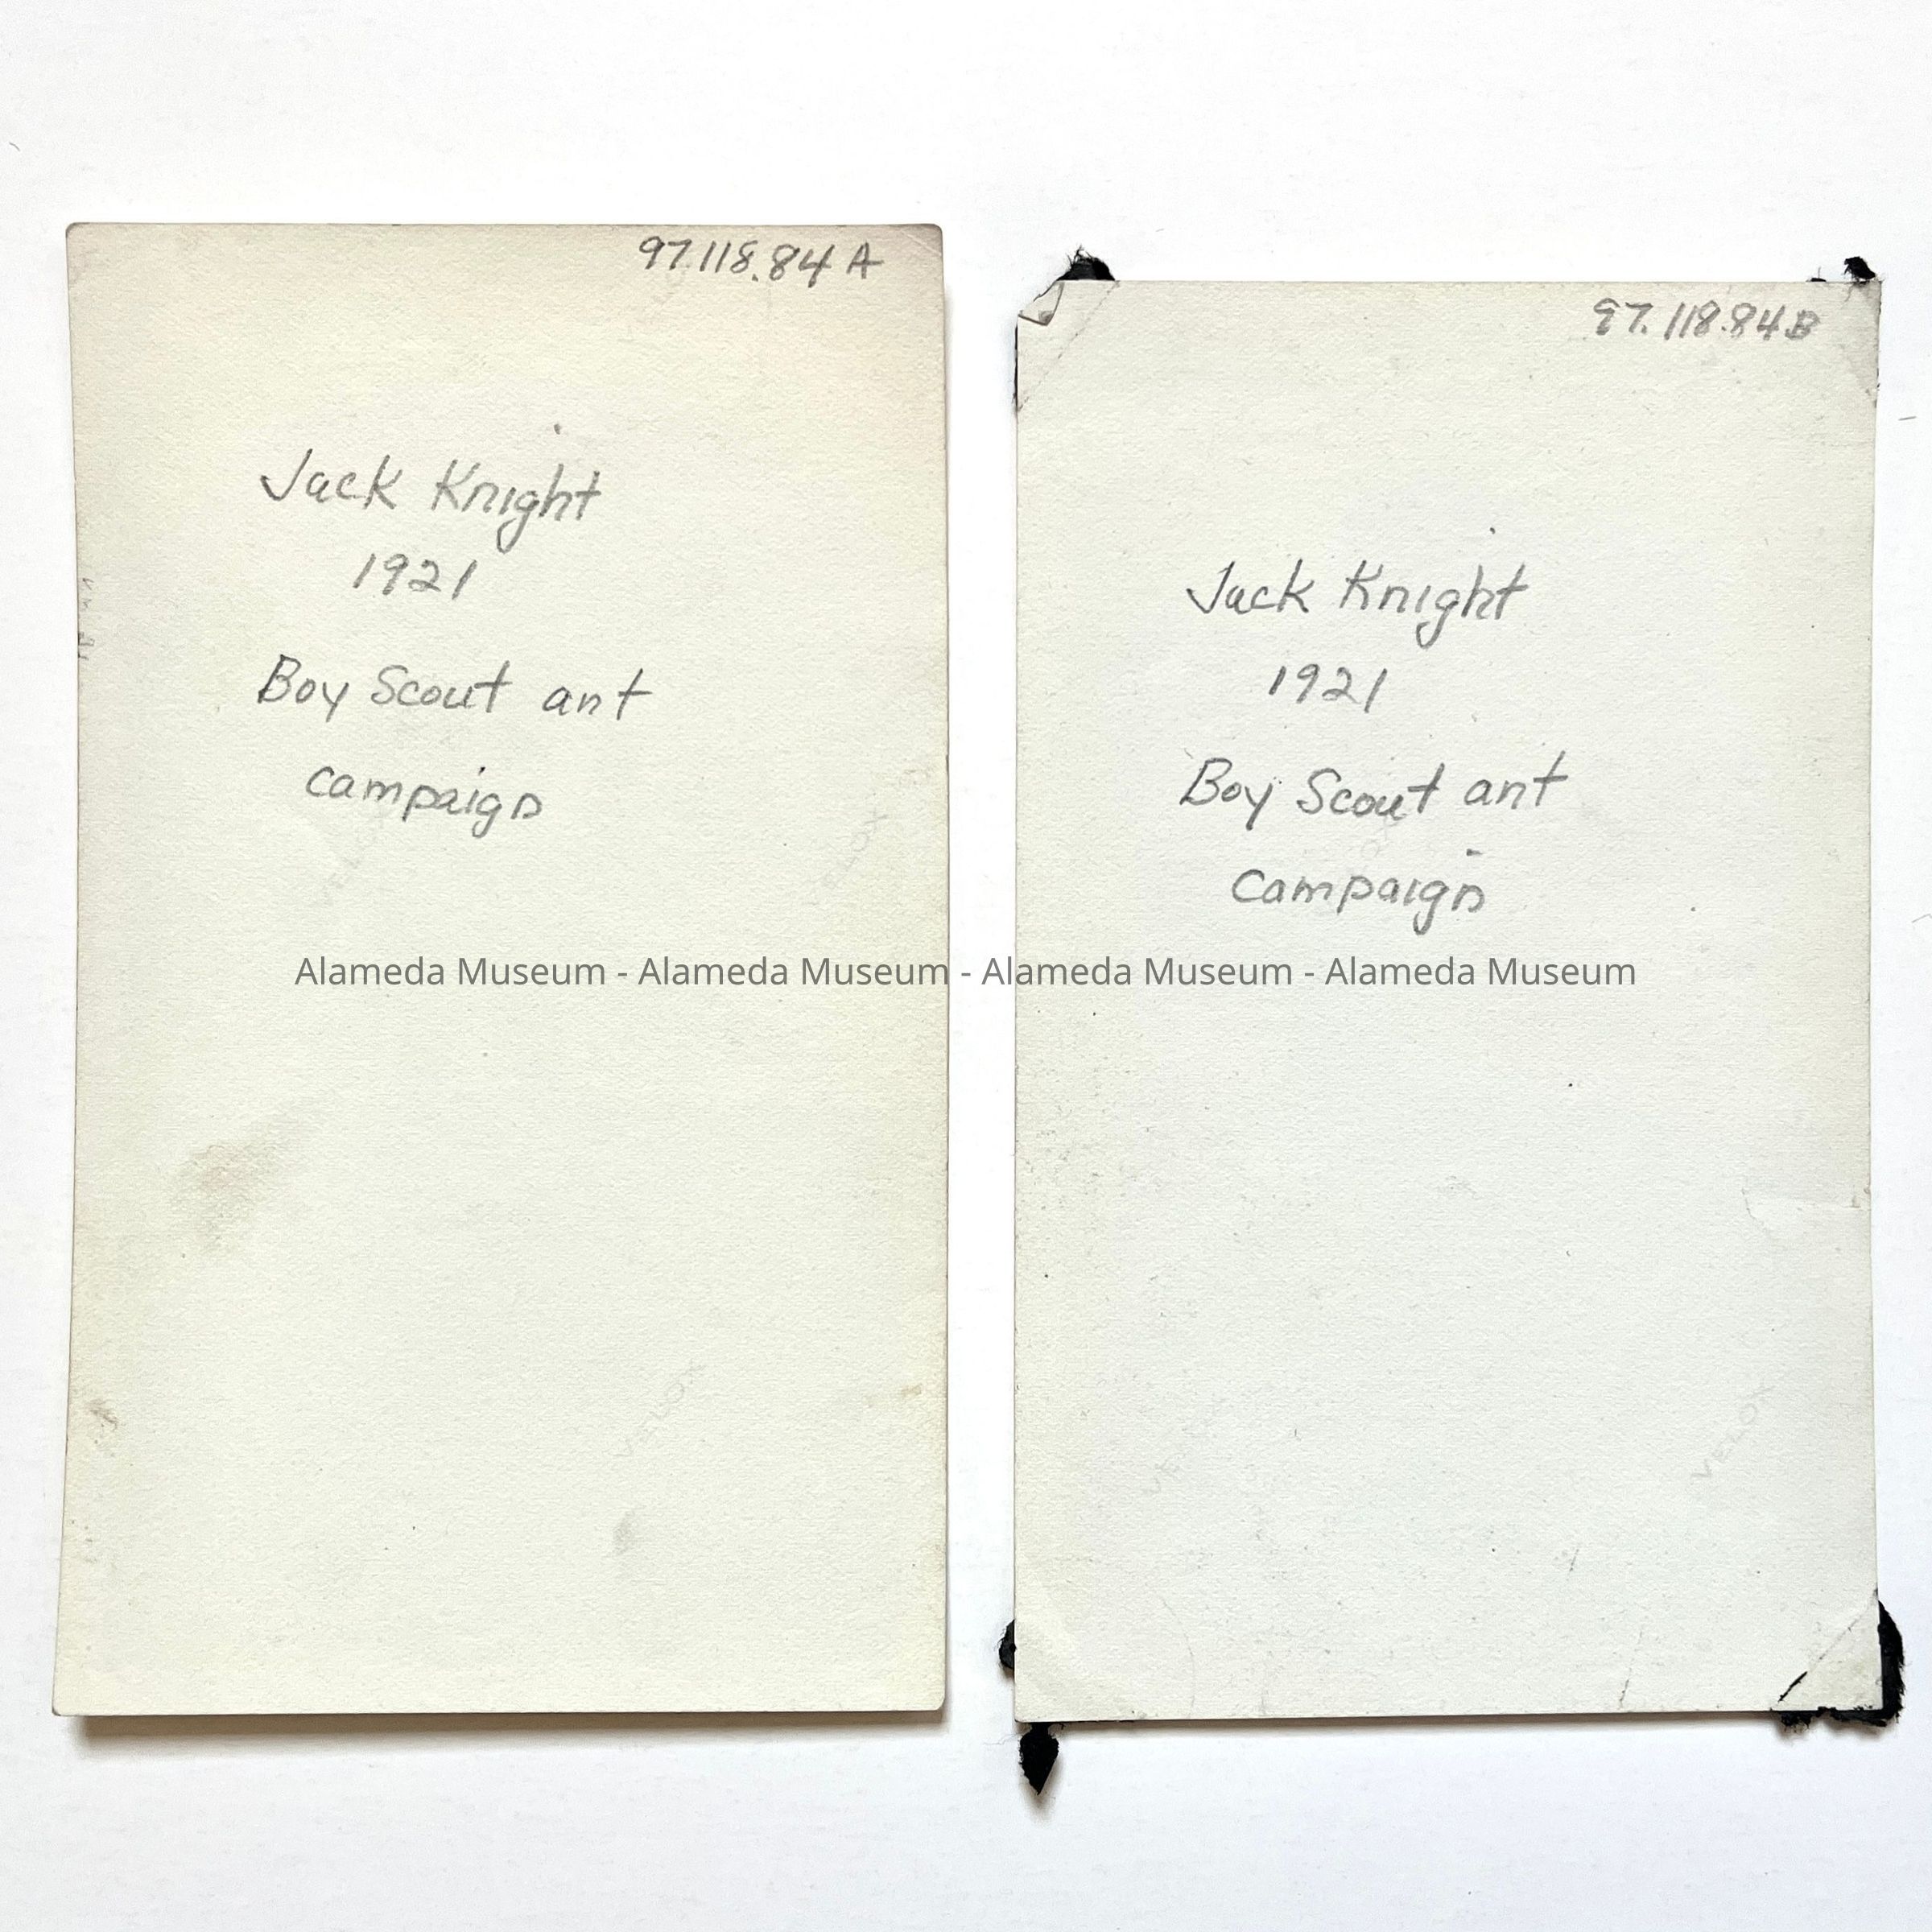 97.118.84 A
Jack Knight
1921
Boy Scout ant
campaign
VELOX
VELOX
VELOX
97.118.84B
Jack Knight
1921
Boy Scout ant
campaign
VELOX
Alameda Museum - Alameda Museum - Alameda Museum - Alameda Museum